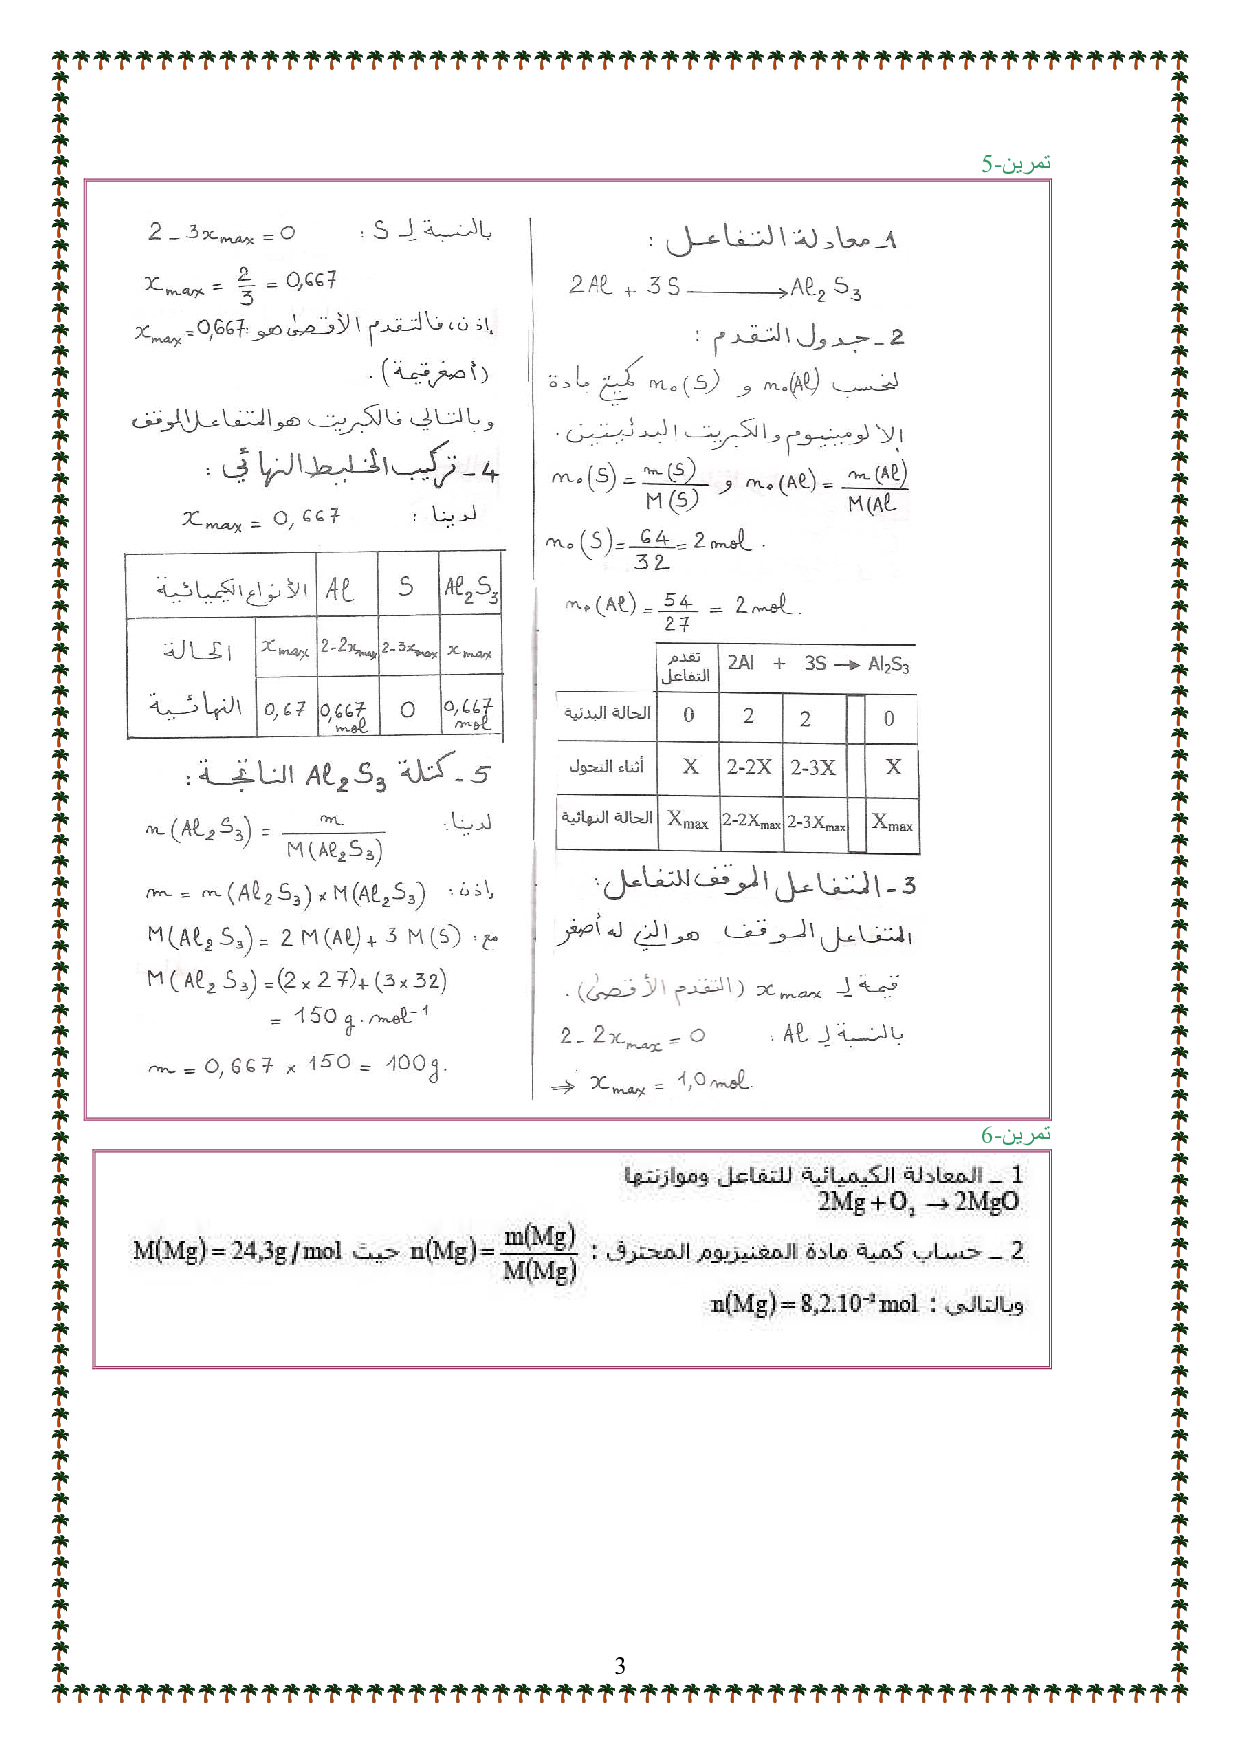 تمرين-5
1_ معادلة التفاعل :
2Al + 3S ⟶ Al₂S₃
2 _ جدول التقدم :
لنحسب n₀(Al) و n₀(S) كميتي مادة
الالومينيوم والكبريت البدئيتين.
n₀(S) = m(S)/M(S) و n₀(Al) = m(Al)/M(Al
n₀(S) = 64/32 = 2 mol .
n₀(Al) = 54/27 = 2 mol .
تقدم التفاعل 2Al + 3S → Al₂S₃
الحالة البدئية 0 2 2 0
أثناء التحول X 2-2X 2-3X X
الحالة النهائية Xmax 2-2Xmax 2-3Xmax Xmax
3 - المتفاعل الموقف للتفاعل:
المتفاعل الموقف هو الذي له أصغر
قيمة لـ xmax (التقدم الأقصى).
بالنسبة لـ Al : 2 - 2xmax = 0
⇒ xmax = 1,0 mol.
بالنسبة لـ S : 2 - 3xmax = 0
xmax = 2/3 = 0,667
إذن، فالتقدم الأقصى هو : xmax = 0,667
(أصغر قيمة).
وبالتالي فالكبريت هو المتفاعل الموقف
4 - تركيب الخليط النهائي :
لدينا : xmax = 0,667
الأنواع الكيميائية Al S Al₂S₃
الحالة xmax 2-2xmax 2-3xmax xmax
النهائية 0,67 0,667 mol 0 0,667 mol
5 - كتلة Al₂S₃ الناتجة :
لدينا: n(Al₂S₃) = m/M(Al₂S₃)
إذن : m = n(Al₂S₃) × M(Al₂S₃)
مع : M(Al₂S₃) = 2 M(Al) + 3 M(S)
M(Al₂S₃) = (2 × 27) + (3 × 32)
= 150 g.mol⁻¹
m = 0,667 × 150 = 100 g.
تمرين-6
1 _ المعادلة الكيميائية للتفاعل وموازنتها
2Mg + O₂ → 2MgO
2 _ حساب كمية مادة المغنيزيوم المحترق : n(Mg) = m(Mg)/M(Mg) حيث M(Mg) = 24,3g/mol
وبالتالي : n(Mg) = 8,2.10⁻² mol
3